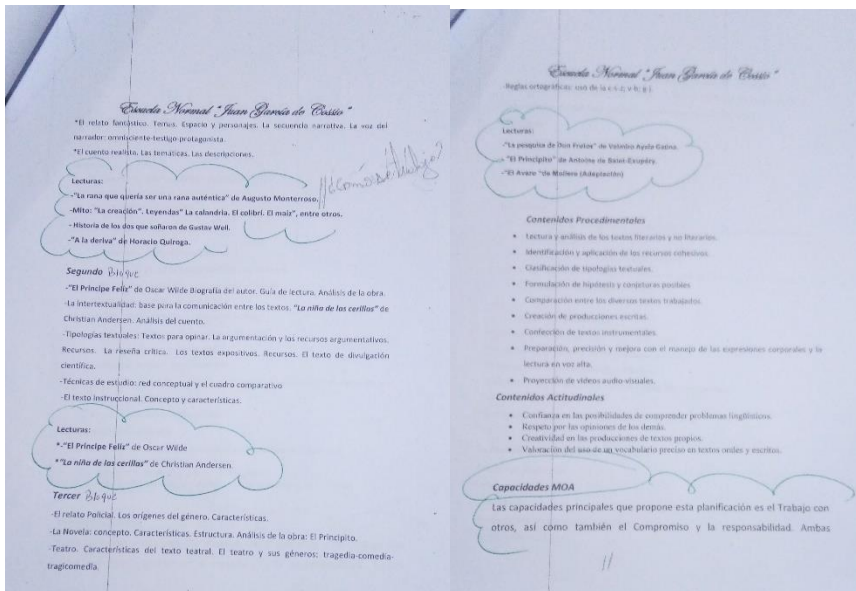 Escuela Normal "Juan García de Cossio"
*El relato fantástico. Temas. Espacio y personajes. La secuencia narrativa. La voz del
narrador: omnisciente-testigo-protagonista.
*El cuento realista. Las temáticas. Las descripciones.
Lecturas:
-"La rana que quería ser una rana auténtica" de Augusto Monterroso.
-Mito: "La creación". Leyendas" La calandria. El colibrí. El maíz", entre otros.
- Historia de los dos que soñaron de Gustav Weil.
-"A la deriva" de Horacio Quiroga.
Segundo Bloque
-"El Príncipe Feliz" de Oscar Wilde Biografía del autor. Guía de lectura. Análisis de la obra.
-La intertextualidad: base para la comunicación entre los textos. "La niña de las cerillas" de
Christian Andersen. Análisis del cuento.
-Tipologías textuales: Textos para opinar. La argumentación y los recursos argumentativos.
Recursos. La reseña crítica. Los textos expositivos. Recursos. El texto de divulgación
científica.
-Técnicas de estudio: red conceptual y el cuadro comparativo
-El texto instruccional. Concepto y características.
Lecturas:
*-"El Príncipe Feliz" de Oscar Wilde
*"La niña de las cerillas" de Christian Andersen.
Tercer Bloque
-El relato Policial. Los orígenes del género. Características.
-La Novela: concepto. Características. Estructura. Análisis de la obra: El Principito.
-Teatro. Características del texto teatral. El teatro y sus géneros: tragedia-comedia-
tragicomedia.
Escuela Normal "Juan García de Cossio"
Reglas ortográficas: uso de la
Lecturas:
-"La pesquisa de Don Frutos" de Velmiro Ayala Gauna.
-"El Principito" de Antoine de Saint-Exupéry.
-"El Avaro "de Moliere (Adaptación)
Contenidos Procedimentales
• Lectura y análisis de los textos literarios y no literarios.
• Identificación y aplicación de los recursos cohesivos.
• Clasificación de tipologías textuales.
• Formulación de hipótesis y conjeturas posibles
• Comparación entre los diversos textos trabajados.
• Creación de producciones escritas.
• Confección de textos instrumentales.
• Preparación, precisión y mejora con el manejo de las expresiones corporales y la
lectura en voz alta.
• Proyección de videos audio-visuales.
Contenidos Actitudinales
• Confianza en las posibilidades de comprender problemas lingüísticos.
• Respeto por las opiniones de los demás.
• Creatividad en las producciones de textos propios.
• Valoración del uso de un vocabulario preciso en textos orales y escritos.
Capacidades MOA
Las capacidades principales que propone esta planificación es el Trabajo con
otros, así como también el Compromiso y la responsabilidad. Ambas